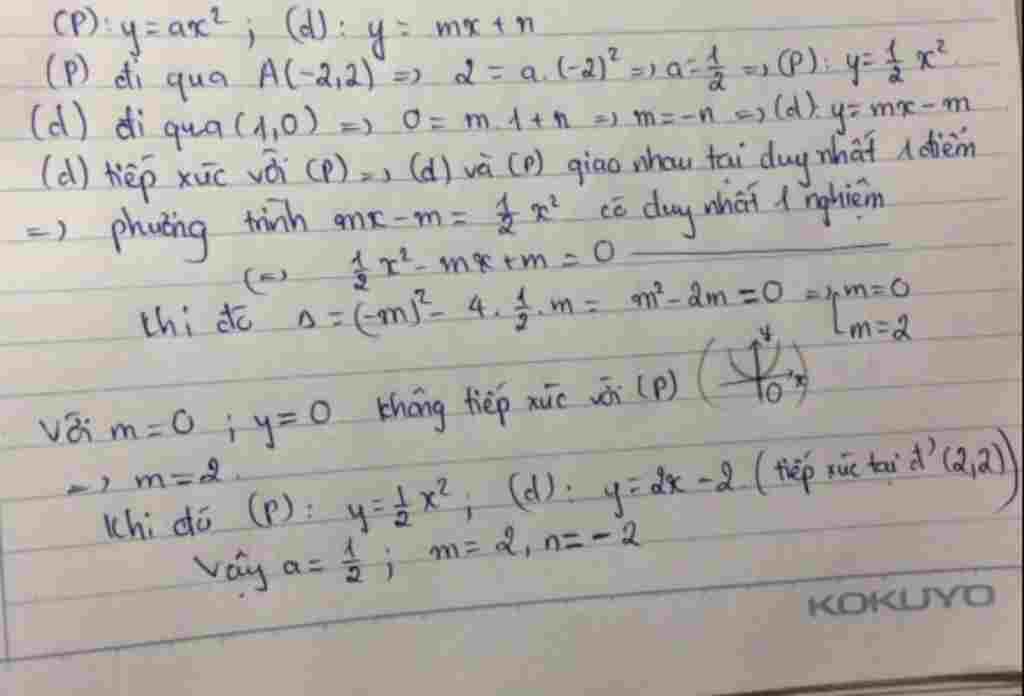 (P): y = ax² ; (d): y = mx + n
(P) đi qua A(-2,2) => 2 = a.(-2)² => a = 1/2 => (P): y = 1/2 x²
(d) đi qua (1,0) => 0 = m.1 + n => m = -n => (d): y = mx - m
(d) tiếp xúc với (P) => (d) và (P) giao nhau tại duy nhất 1 điểm
=> phương trình mx - m = 1/2 x² có duy nhất 1 nghiệm
(=) 1/2 x² - mx + m = 0
Khi đó Δ = (-m)² - 4 . 1/2 . m = m² - 2m = 0 => [ m = 0
m = 2
Với m = 0 ; y = 0 không tiếp xúc với (P) ( y x O )
=> m = 2.
Khi đó (P): y = 1/2 x² ; (d): y = 2x - 2 (tiếp xúc tại đ' (2,2))
Vậy a = 1/2 ; m = 2, n = -2
KOKUYO